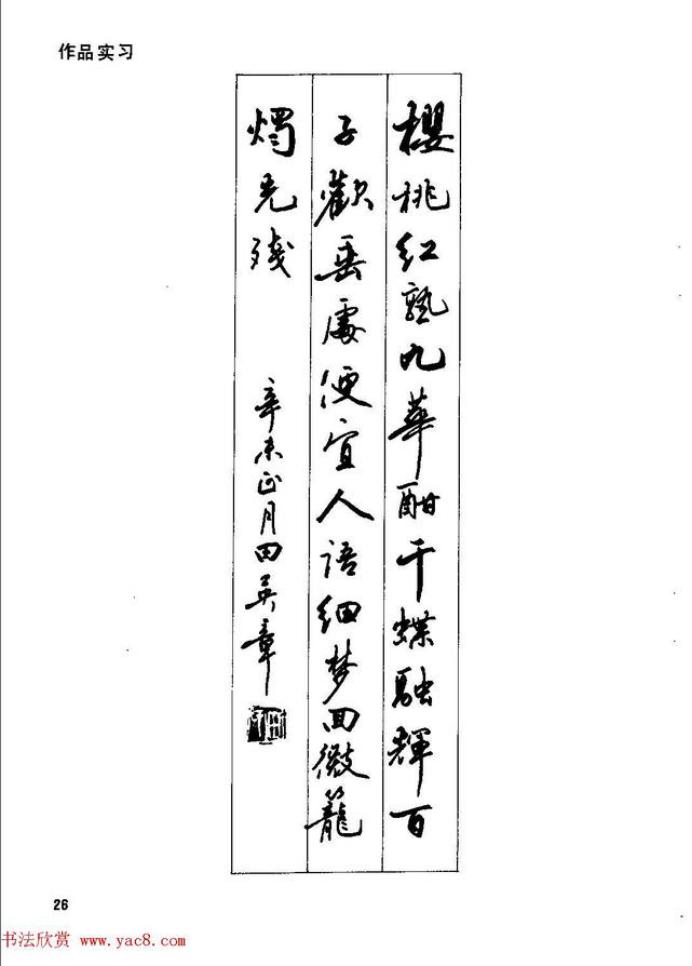 作品实习
樱桃红熟九華酣干蝶融輝百
子歡垂處便宜人語细梦回微籠
燭光残
辛未正月田英章
26
书法欣赏 www.yac8.com